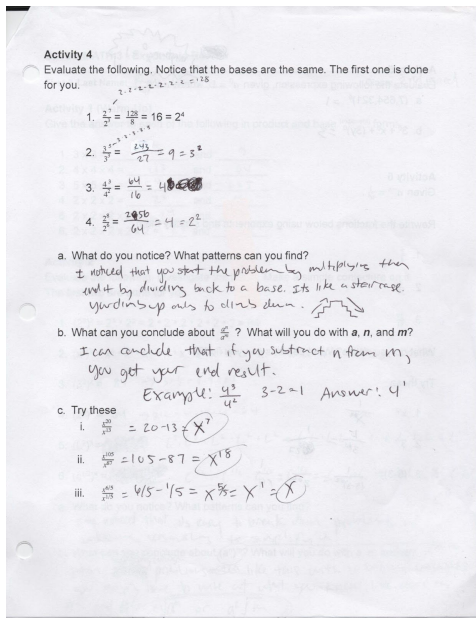 Activity 4
Evaluate the following. Notice that the bases are the same. The first one is done
for you.
2·2·2·2·2·2·2=128
1. 2⁷/2³ = 128/8 = 16 = 2⁴
2. 3⁵/3³ = 243/27 = 9 = 3²
3. 4³/4² = 64/16 = 4
4. 2⁸/2⁶ = 256/64 = 4 = 2²
a. What do you notice? What patterns can you find?
I noticed that you start the problem by multiplying then
end it by dividing back to a base. Its like a staircase.
You climb up only to climb down.
b. What can you conclude about ? What will you do with a, n, and m?
I can conclude that if you subtract n from m,
you get your end result.
Example: 4³/4² 3-2=1 Answer: 4¹
c. Try these
i. x²⁰/x¹³ = 20-13 = x⁷
ii. x¹⁰⁵/x⁸⁷ = 105-87 = x¹⁸
iii. x^6/5/x^1/5 = 6/5-1/5 = x^5/5 = x¹ = x